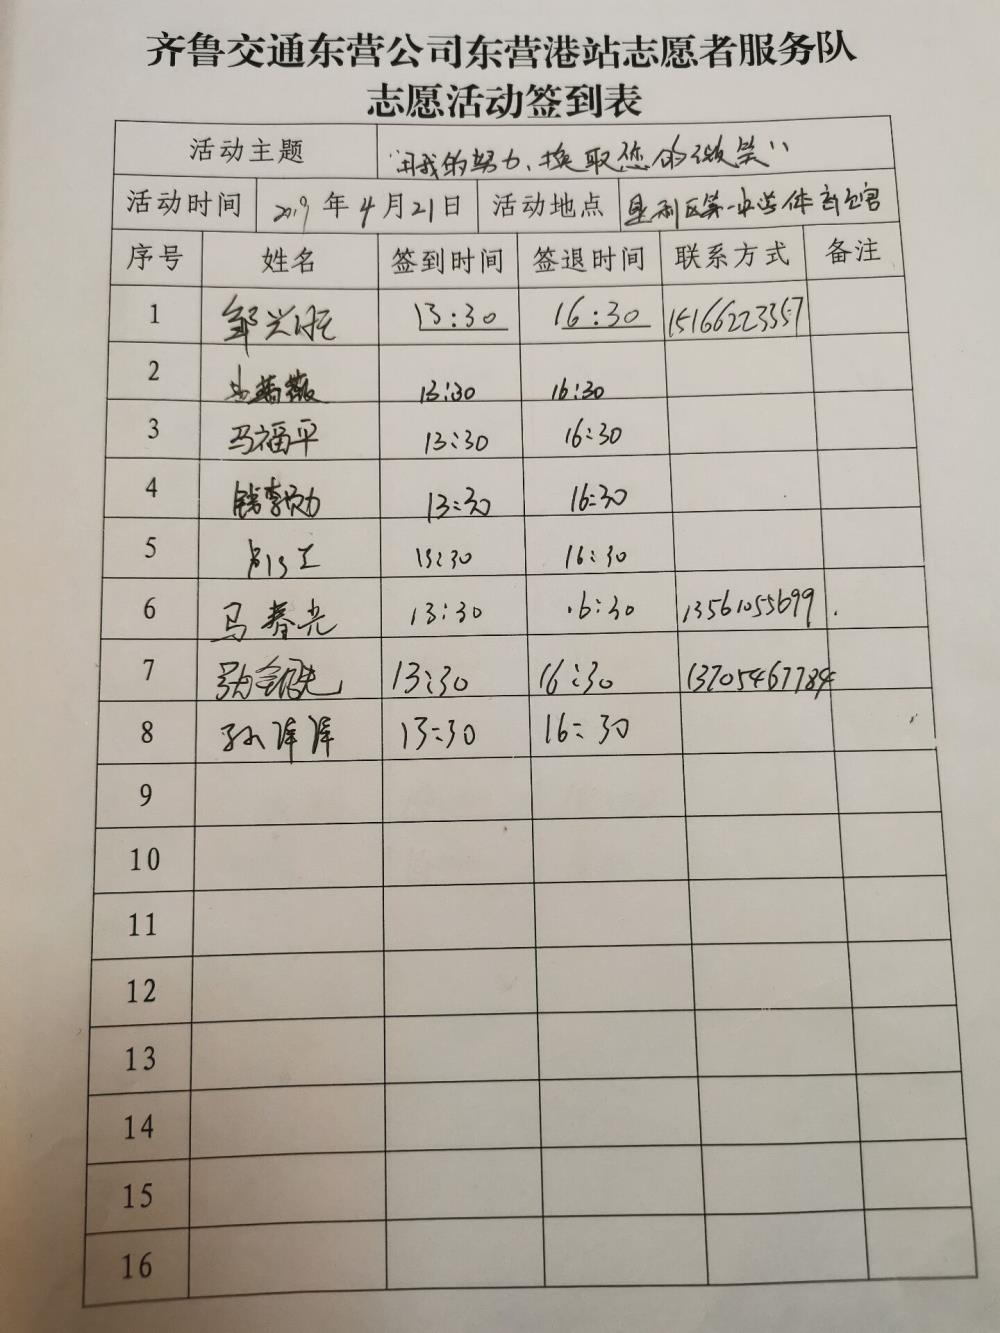 齐鲁交通东营公司东营港站志愿者服务队
志愿活动签到表
活动主题 “用我的努力、换取您的微笑”
活动时间 2019年4月21日 活动地点 垦利区第一中学体育馆
序号 姓名 签到时间 签退时间 联系方式 备注
1 邹兴旺 13:30 16:30 15166223357
2 蔷薇 13:30 16:30
3 马福平 13:30 16:30
4 13:30 16:30
5 13:30 16:30
6 马春光 13:30 16:30 13561055699
7 13:30 16:30 13705467784
8 孙洋洋 13:30 16:30
9
10
11
12
13
14
15
16